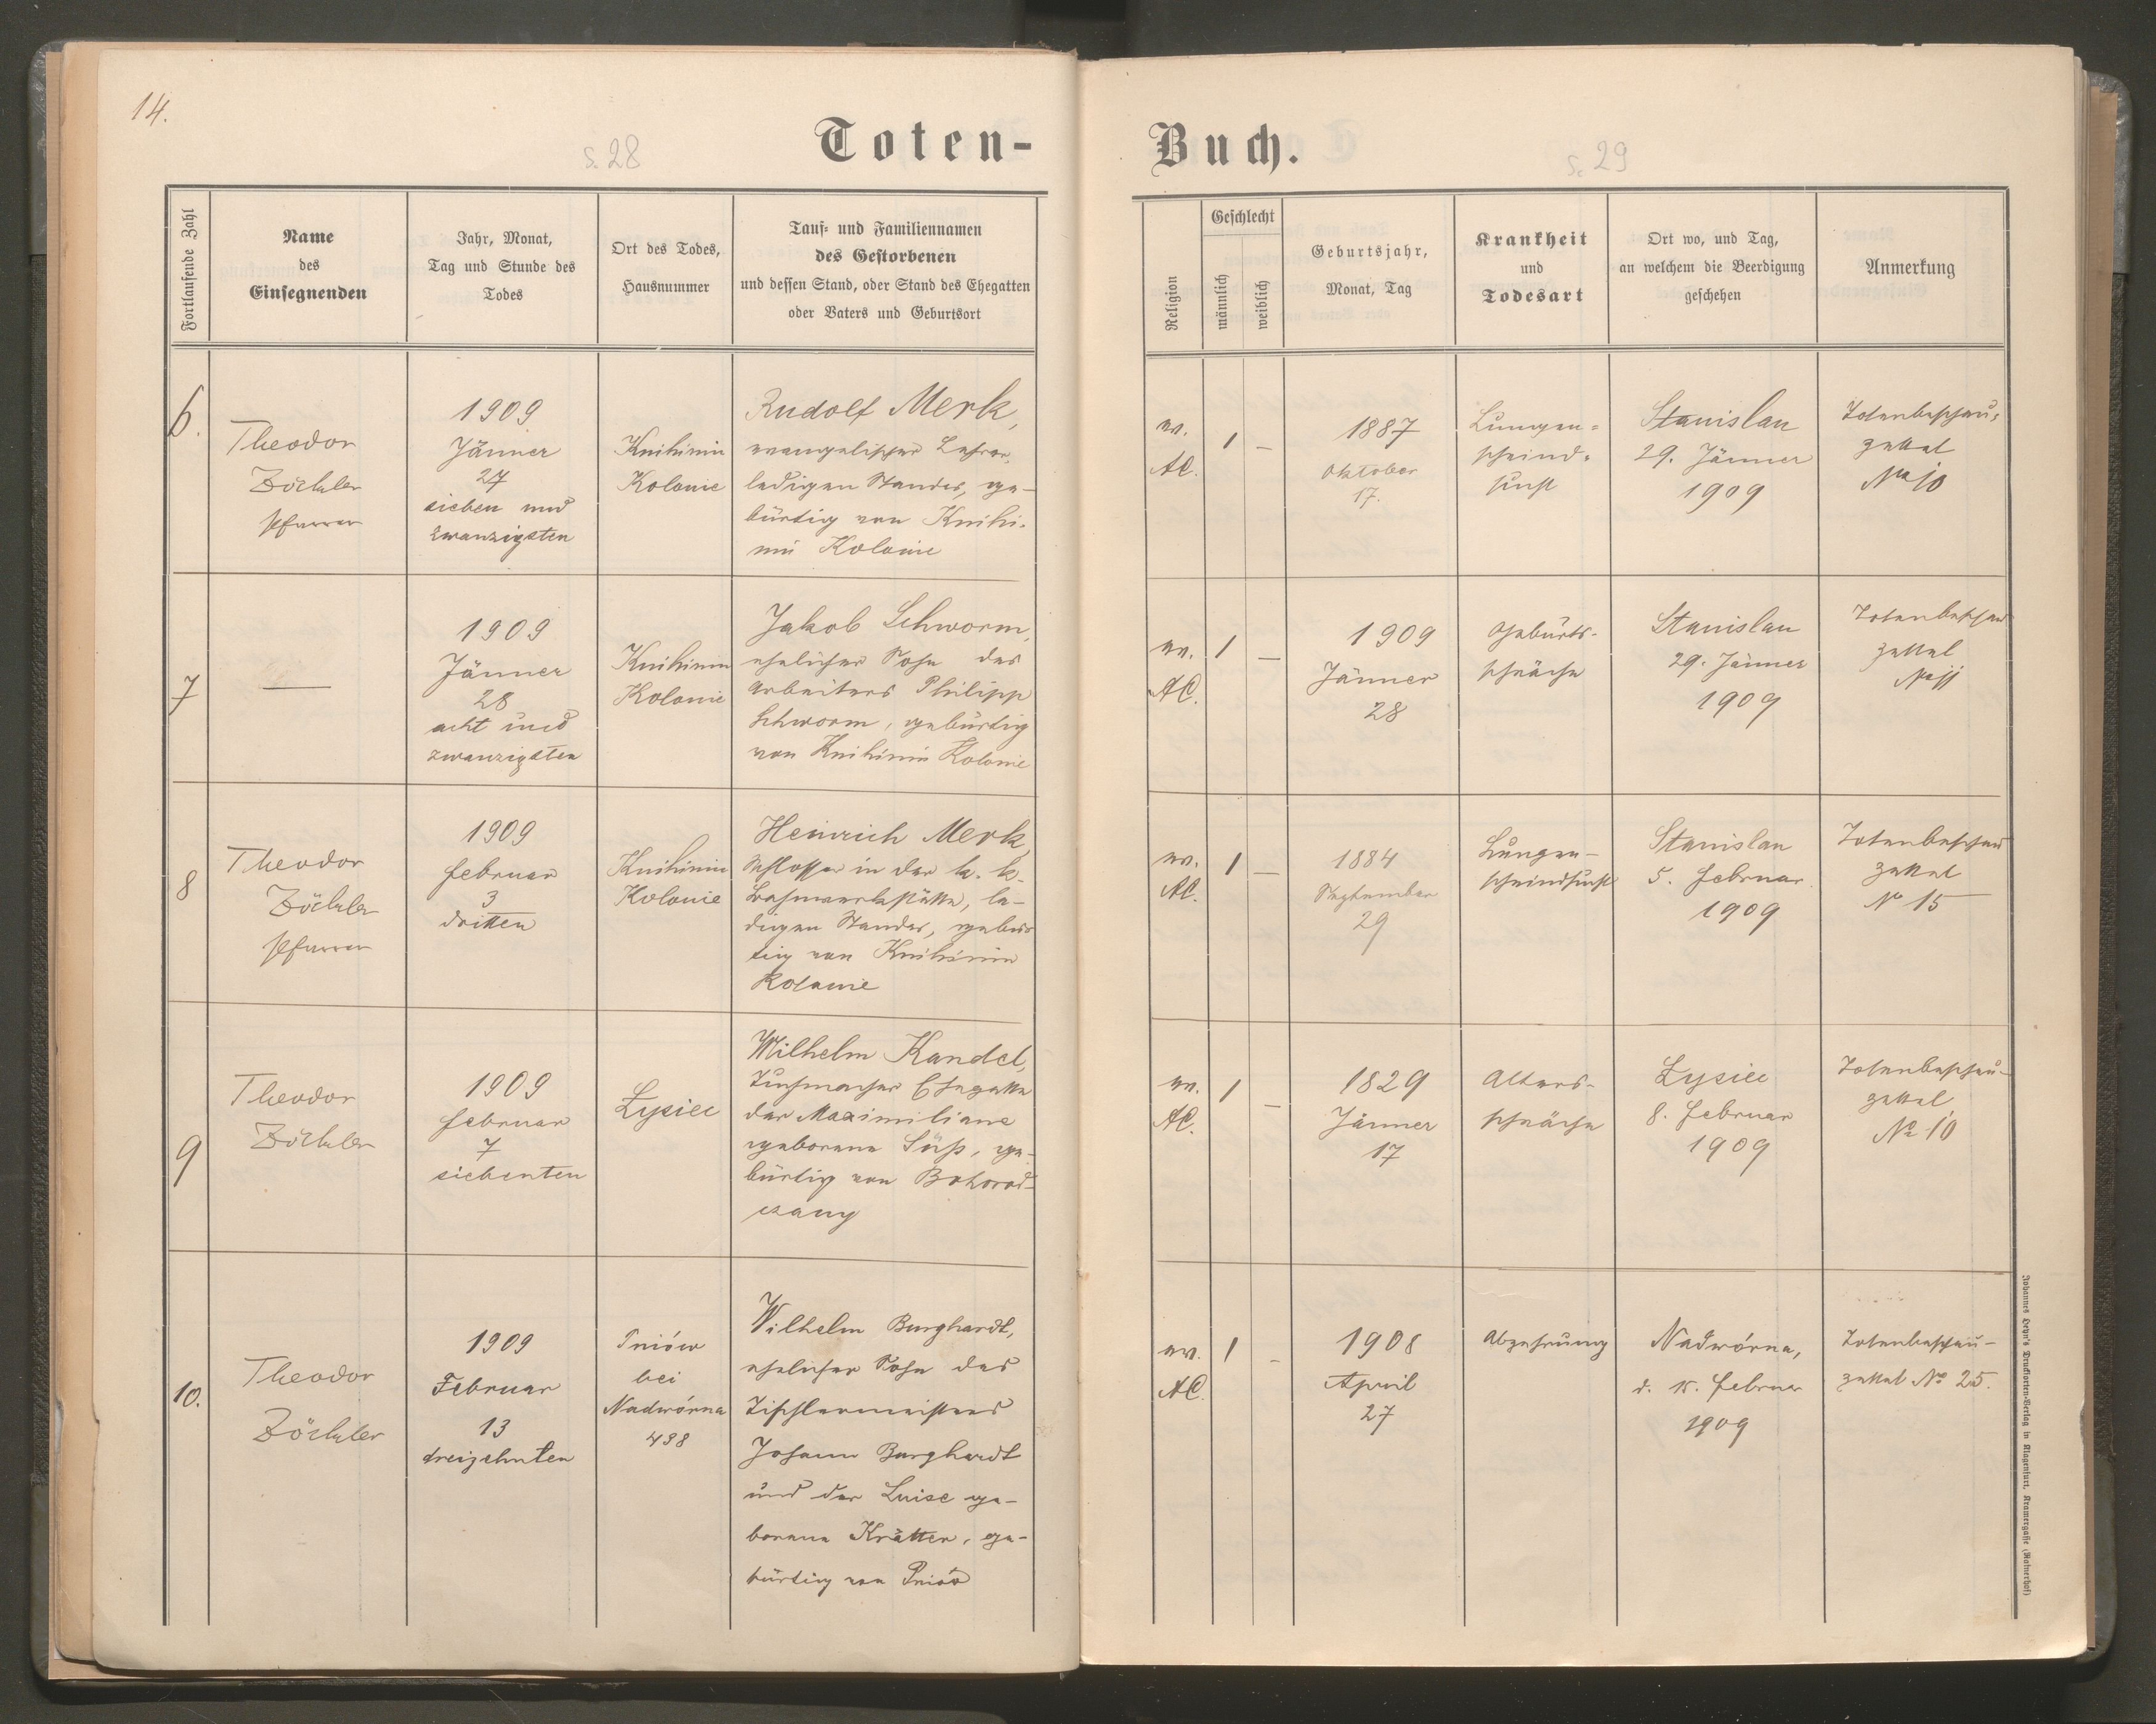 14.
S. 28
Toten-
Fortlaufende Zahl
Name
des
Einsegnenden
Jahr, Monat,
Tag und Stunde des
Todes
Ort des Todes,
Hausnummer
Tauf- und Familiennamen
des Gestorbenen
und dessen Stand, oder Stand des Ehegatten
oder Vaters und Geburtsort
6.
Theodor
Zöckler
Pfarrer
1909
Jänner
27
sieben und
zwanzigsten
Knihinin
Kolonie
Rudolf Merk,
evangelischer Lehrer,
ledigen Standes, ge-
bürtig von Knihi-
nin Kolonie
7
—
1909
Jänner
28
acht und
zwanzigsten
Knihinin
Kolonie
Jakob Schworm,
ehelicher Sohn des
Arbeiters Philipp
Schworm, gebürtig
von Knihinin Kolonie
8
Theodor
Zöckler
Pfarrer
1909
Februar
3
dritten
Knihinin
Kolonie
Heinrich Merk,
Schlosser in der k. k.
Bahnwerkstätte, le-
digen Standes, gebür
tig von Knihinin
Kolonie
9
Theodor
Zöckler
1909
Februar
7
siebenten
Łysiec
Wilhelm Kandel,
Tuchmacher Ehegatte
der Maximiliane
geborene Süß, ge-
bürtig von Bohorod-
czany
10.
Theodor
Zöckler
1909
Februar
13
dreizehnten
Pniów
bei
Nadwórna
438
Wilhelm Burghardt,
ehelicher Sohn des
Tischlermeisters
Johann Burghardt
und der Luise ge-
borene Krätter, ge-
bürtig von Pniów
Buch.
S. 29
Religion
Geschlecht
männlich
weiblich
Geburtsjahr,
Monat, Tag
Krankheit
und
Todesart
Ort wo, und Tag,
an welchem die Beerdigung
geschehen
Anmerkung
ev.
AC.
1
—
1887
Oktober
17.
Lungen-
schwind-
sucht
Stanislau
29. Jänner
1909
Totenbeschau-
zettel
No 10
ev.
AC.
1
—
1909
Jänner
28
Geburts-
schwäche
Stanislau
29. Jänner
1909
Totenbeschau
zettel
No 11
ev.
AC.
1
—
1884
September
29
Lungen-
schwindsucht
Stanislau
5. Februar
1909
Totenbeschau
zettel
No 15
ev.
AC.
1
—
1829
Jänner
17
Alters-
schwäche
Łysiec
8. Februar
1909
Totenbeschau-
zettel
No 10
ev.
AC.
1
-
1908
April
27
Abzehrung
Nadwórna,
d. 15. Februar
1909
Totenbeschau-
zettel No 25.
Johannes Heyn's Drucksorten-Verlag in Klagenfurt, Kramergasse (Rainerhof)